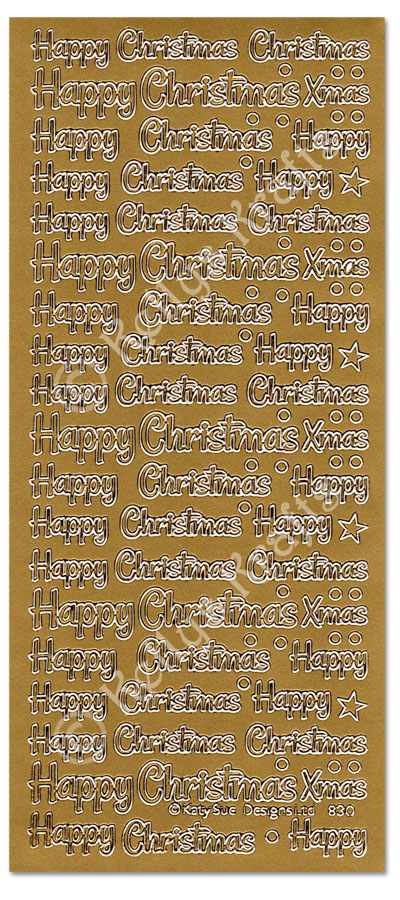 Happy Christmas Christmas
Happy Christmas Xmas
Happy Christmas Happy
Happy Christmas Happy
Happy Christmas Christmas
Happy Christmas Xmas
Happy Christmas Happy
Happy Christmas Happy
Happy Christmas Christmas
Happy Christmas Xmas
Happy Christmas Happy
Happy Christmas Happy
Happy Christmas Christmas
Happy Christmas Xmas
Happy Christmas Happy
Happy Christmas Happy
Happy Christmas Christmas
Happy Christmas Xmas
© Katy Sue Designs Ltd 830
Happy Christmas Happy